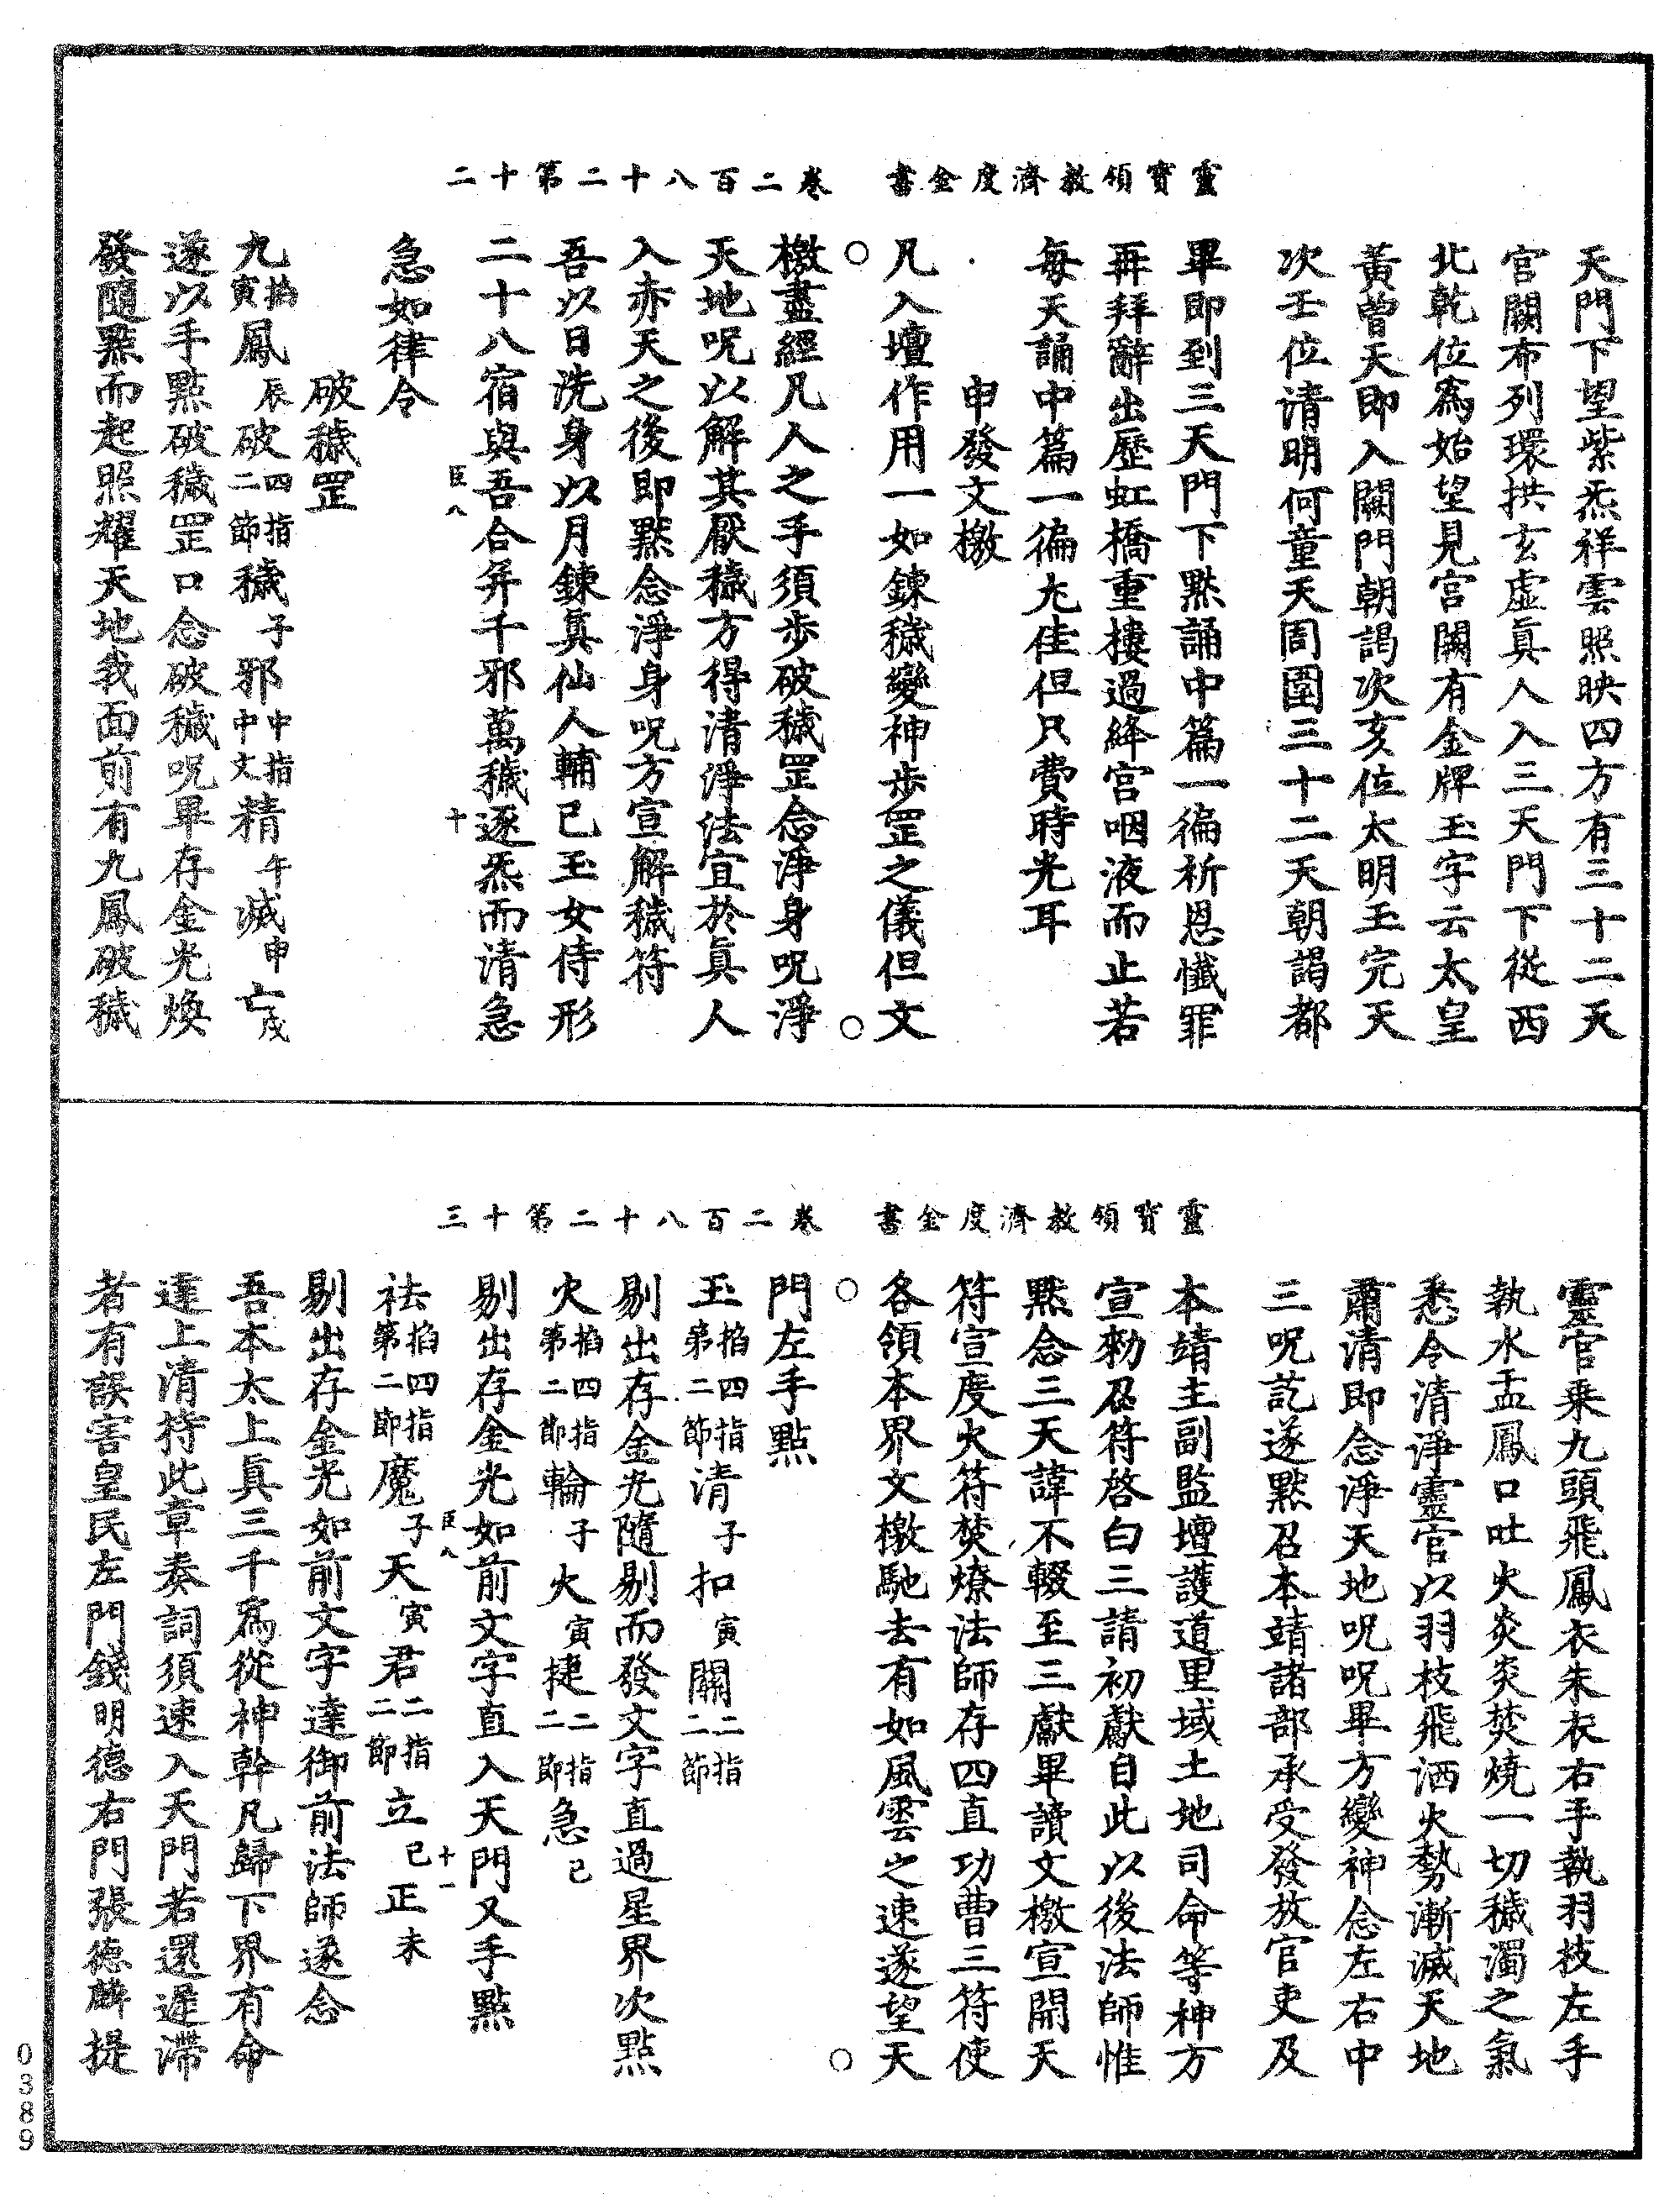 靈寶領教濟度金書　卷二百八十二第十二
天門下望紫炁祥雲照映四方有三十二天
宮闕布列環拱玄虛真人入三天門下從西
北乾位為始望見宮闕有金牌玉字云太皇
黃曾天即入闕門朝謁次亥位太明玉完天
次壬位清明何童天周圍三十二天朝謁都
畢即到三天門下黙誦中篇一徧祈恩懺罪
再拜辭出歷虹橋重樓過絳宮咽液而止若
每天誦中篇一徧尤佳但只費時光耳
申發文檄
凡入壇作用一如鍊穢變神步罡之儀但文
檄盡經凡人之手須步破穢罡念淨身呪淨
天地呪以解其厭穢方得清淨法宜於真人
入赤天之後即黙念淨身呪方宣解穢符
吾以日洗身以月鍊真仙人輔已玉女侍形
二十八宿與吾合并千邪萬穢逐炁而清急
臣八　十
急如律令
破穢罡
九掐寅鳳辰破四指二節穢子邪中指中文精午滅申亡戌
遂以手點破穢罡口念破穢呪畢存金光煥
發隨點而起照耀天地我面前有九鳳破穢
靈寶領教濟度金書　卷二百八十二第十三
靈官乘九頭飛鳳衣朱衣右手執羽枝左手
執水盂鳳口吐火炎炎焚燒一切穢濁之氣
悉令清淨靈官以羽枝飛洒火勢漸滅天地
肅清即念淨天地呪呪畢方變神念左右中
三呪訖遂黙召本靖諸部承受發放官吏及
本靖主副監壇護道里域土地司命等神方
宣勑召符啓白三請初獻自此以後法師惟
黙念三天諱不輟至三獻畢讀文檄宣開天
符宣度火符焚燎法師存四直功曹三符使
各領本界文檄馳去有如風雲之速遂望天
門左手點
玉掐四指第二節清子扣寅關二指二節
剔出存金光隨剔而發文字直過星界次點
火掐四指第二節輪子火寅捷二指二節急已
剔出存金光如前文字直入天門又手點
祛掐四指第二節魔子天寅君二指二節立已正未
臣八　十一
剔出存金光如前文字達御前法師遂念
吾本太上真三千為從神幹凡歸下界有命
達上清持此章奏詞須速入天門若還遲滯
者有誤害皇民左門錢明德右門張德麟提
0389